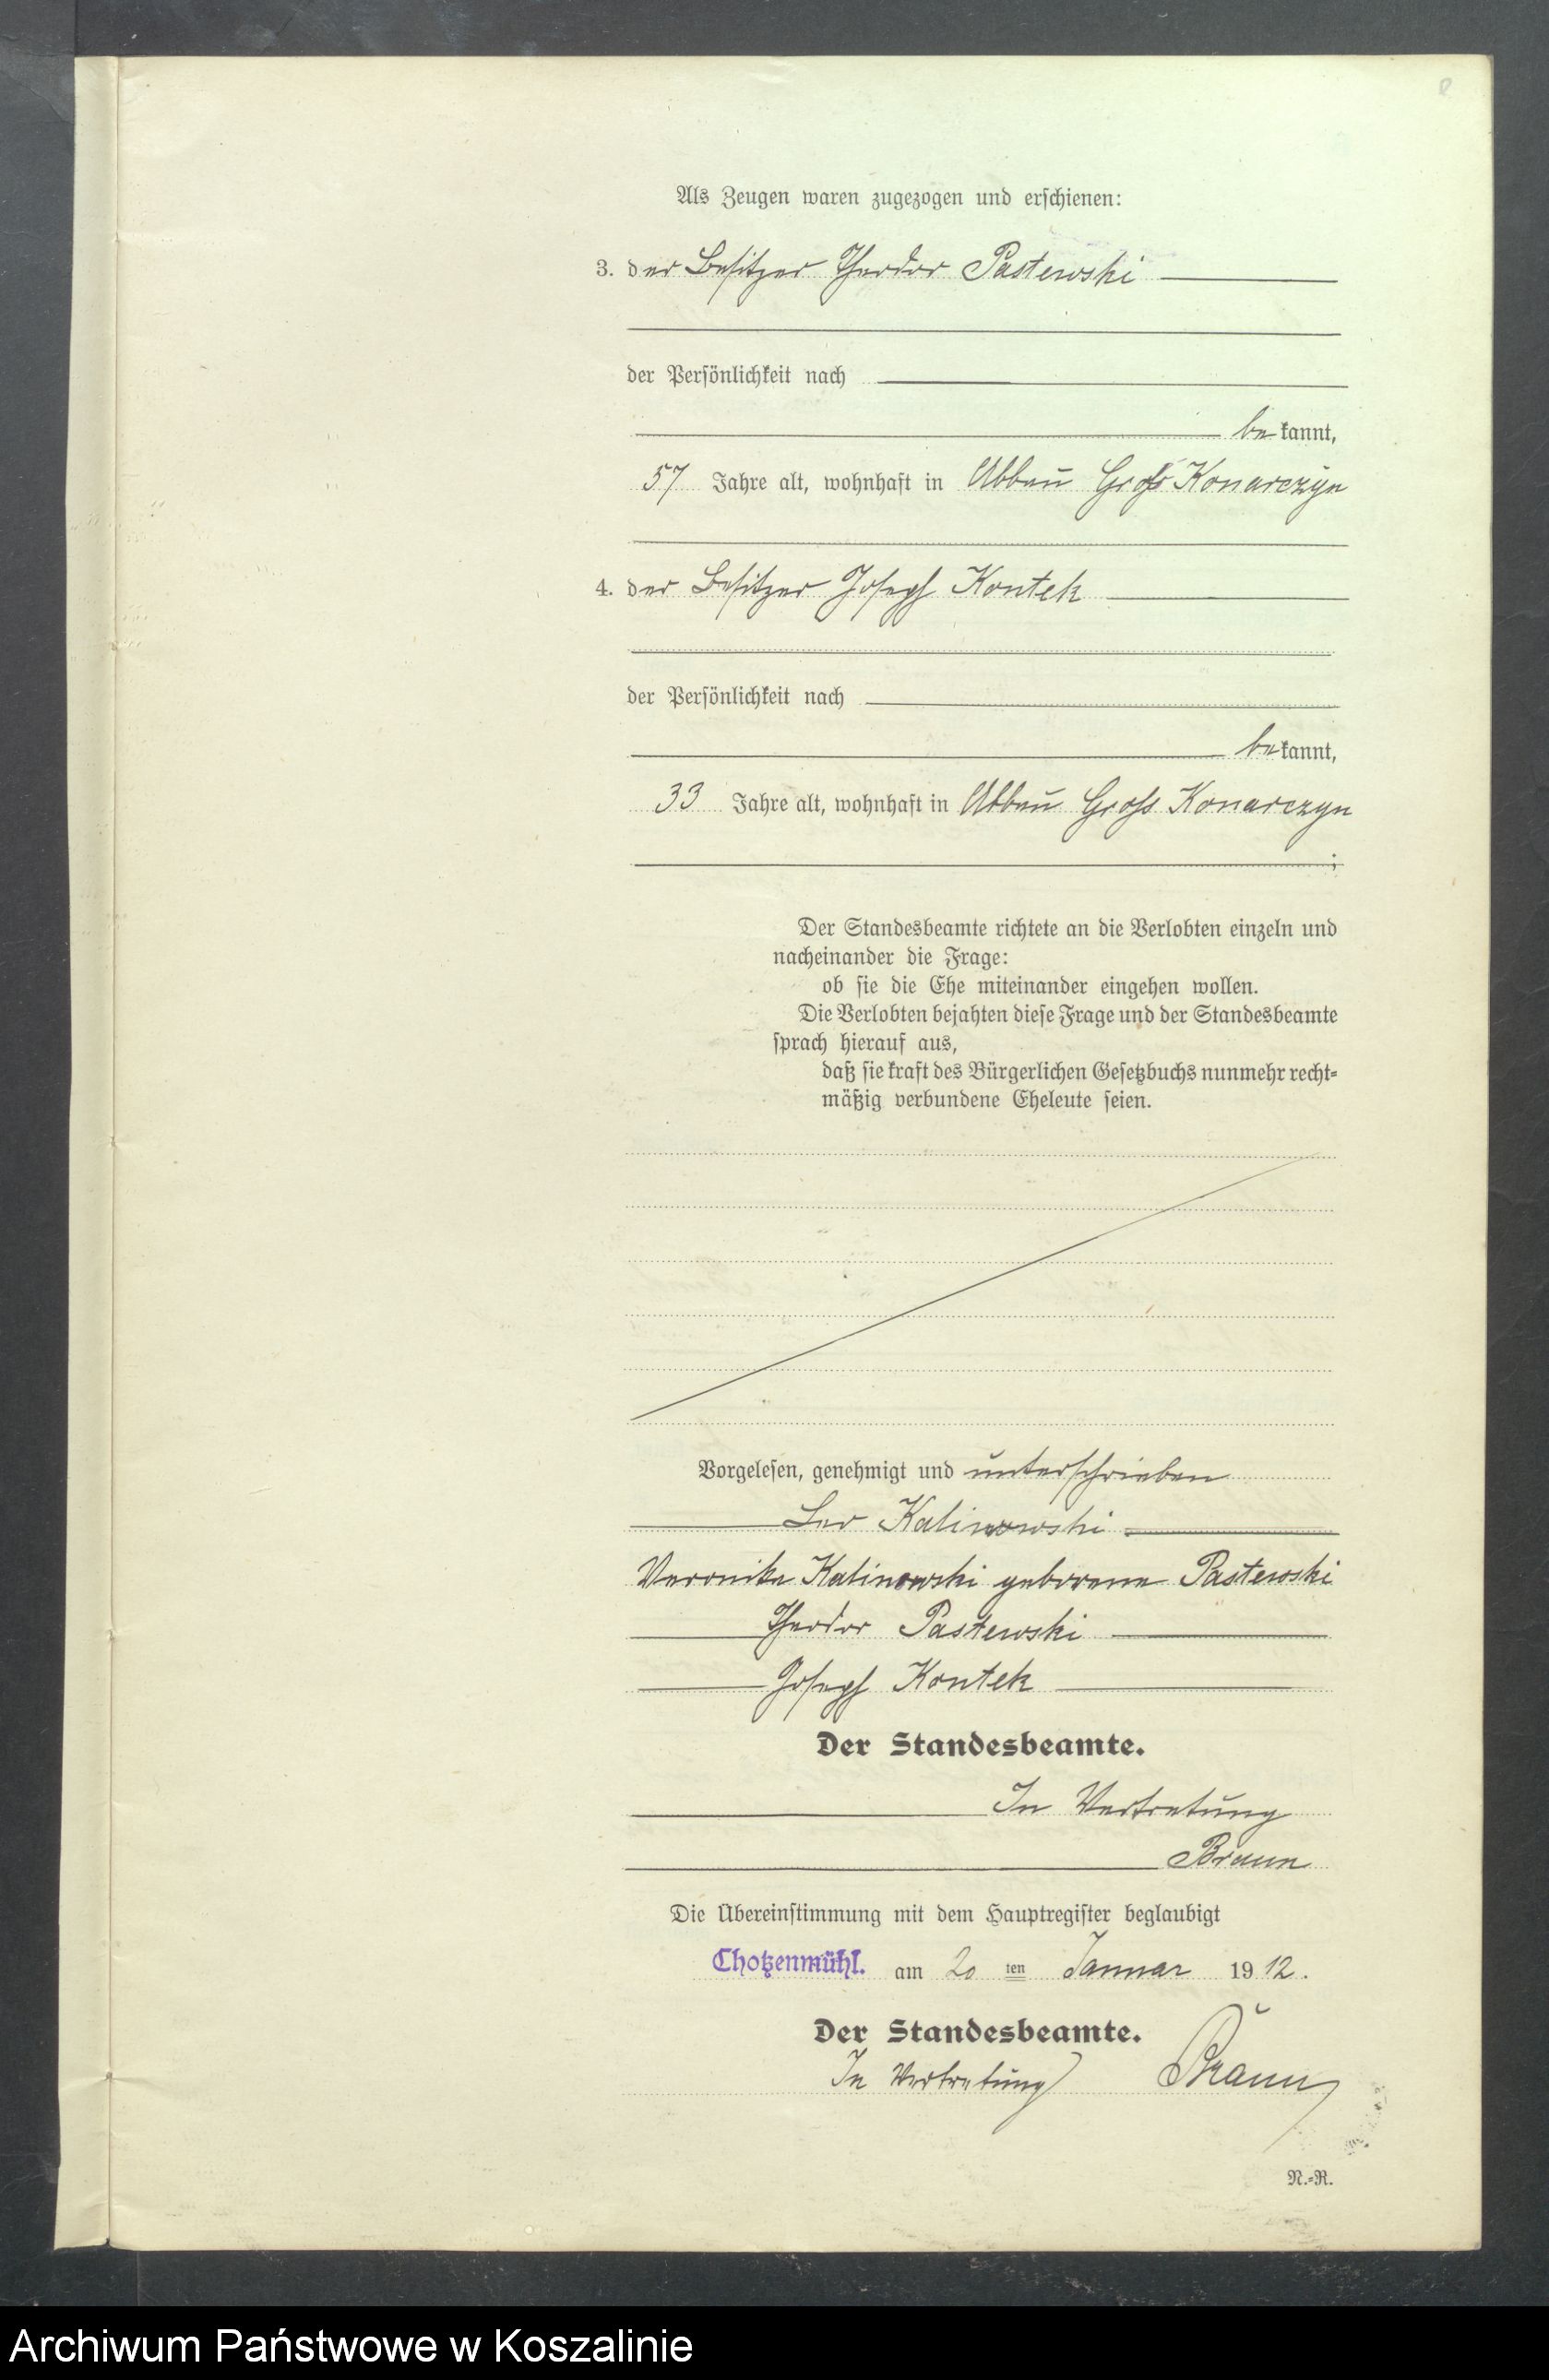 Als Zeugen waren zugezogen und erschienen:
3. der Besitzer Theodor Pastewski
der Persönlichkeit nach
bekannt,
57 Jahre alt, wohnhaft in Abbau Groß Konarczyn
4. der Besitzer Joseph Kontek
der Persönlichkeit nach
bekannt,
33 Jahre alt, wohnhaft in Abbau Groß Konarczyn
;
Der Standesbeamte richtete an die Verlobten einzeln und
nacheinander die Frage:
ob sie die Ehe miteinander eingehen wollen.
Die Verlobten bejahten diese Frage und der Standesbeamte
sprach hierauf aus,
daß sie kraft des Bürgerlichen Gesetzbuchs nunmehr recht-
mäßig verbundene Eheleute seien.
Vorgelesen, genehmigt und unterschrieben
Leo Kalinowski
Veronika Kalinowski geborene Pastewski
Theodor Pastewski
Joseph Kontek
Der Standesbeamte.
In Vertretung
Braun
Die Übereinstimmung mit dem Hauptregister beglaubigt
Chotzenmühl. am 20 ten Januar 1912.
Der Standesbeamte.
In Vertretung Braun
N.-R.
Archiwum Państwowe w Koszalinie